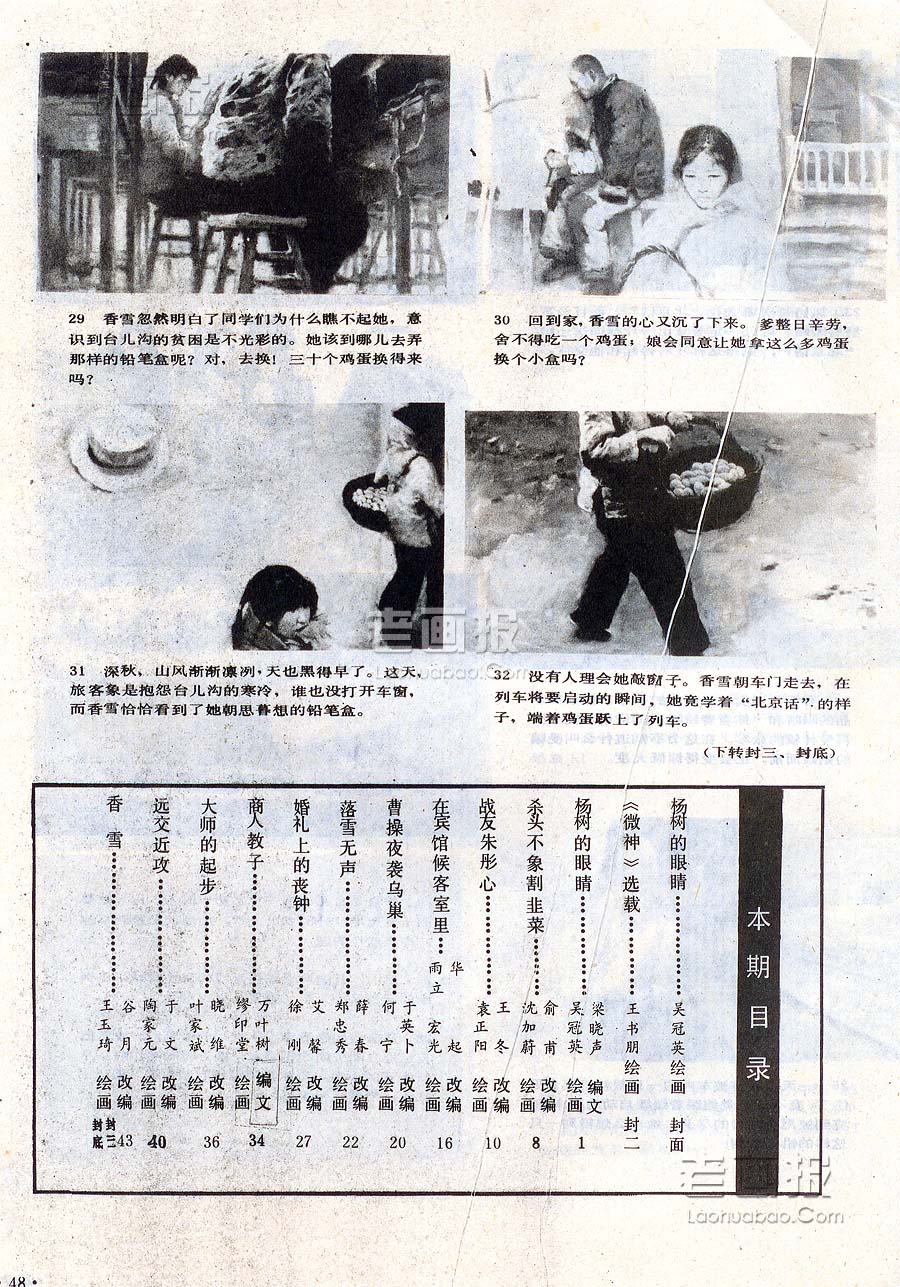 29 香雪忽然明白了同学们为什么瞧不起她，意
识到台儿沟的贫困是不光彩的。她该到哪儿去弄
那样的铅笔盒呢？对，去换！三十个鸡蛋换得来
吗？
30 回到家，香雪的心又沉了下来。爹整日辛劳，
舍不得吃一个鸡蛋；娘会同意让她拿这么多鸡蛋
换个小盒吗？
31 深秋，山风渐渐凛冽，天也黑得早了。这天，
旅客象是抱怨台儿沟的寒冷，谁也没打开车窗，
而香雪恰恰看到了她朝思暮想的铅笔盒。
32 没有人理会她敲窗子。香雪朝车门走去，在
列车将要启动的瞬间，她竟学着“北京话”的样
子，端着鸡蛋跃上了列车。
（下转封三、封底）
本期目录
杨树的眼睛 吴冠英 绘画 封面
《微神》选载 王书朋 绘画 封二
杨树的眼睛 梁晓声 编文 吴冠英 绘画 1
杀头不象割韭菜 俞甫 改编 沈加蔚 绘画 8
战友朱彤心 王冬 改编 袁正阳 绘画 10
在宾馆候客室里 华起 改编 雨立宏光 绘画 16
曹操夜袭乌巢 于英卜 改编 何宁 绘画 20
落雪无声 薛春 改编 郑忠秀 绘画 22
婚礼上的丧钟 艾馨 改编 徐刚 绘画 27
商人教子 万叶树 编文 缪印堂 绘画 34
大师的起步 晓维 改编 叶家斌 绘画 36
远交近攻 于文 改编 陶家元 绘画 40
香雪 谷月 改编 王玉琦 绘画 43 封三 封底
·48·
老画报
老画报
Laohuabao.Com